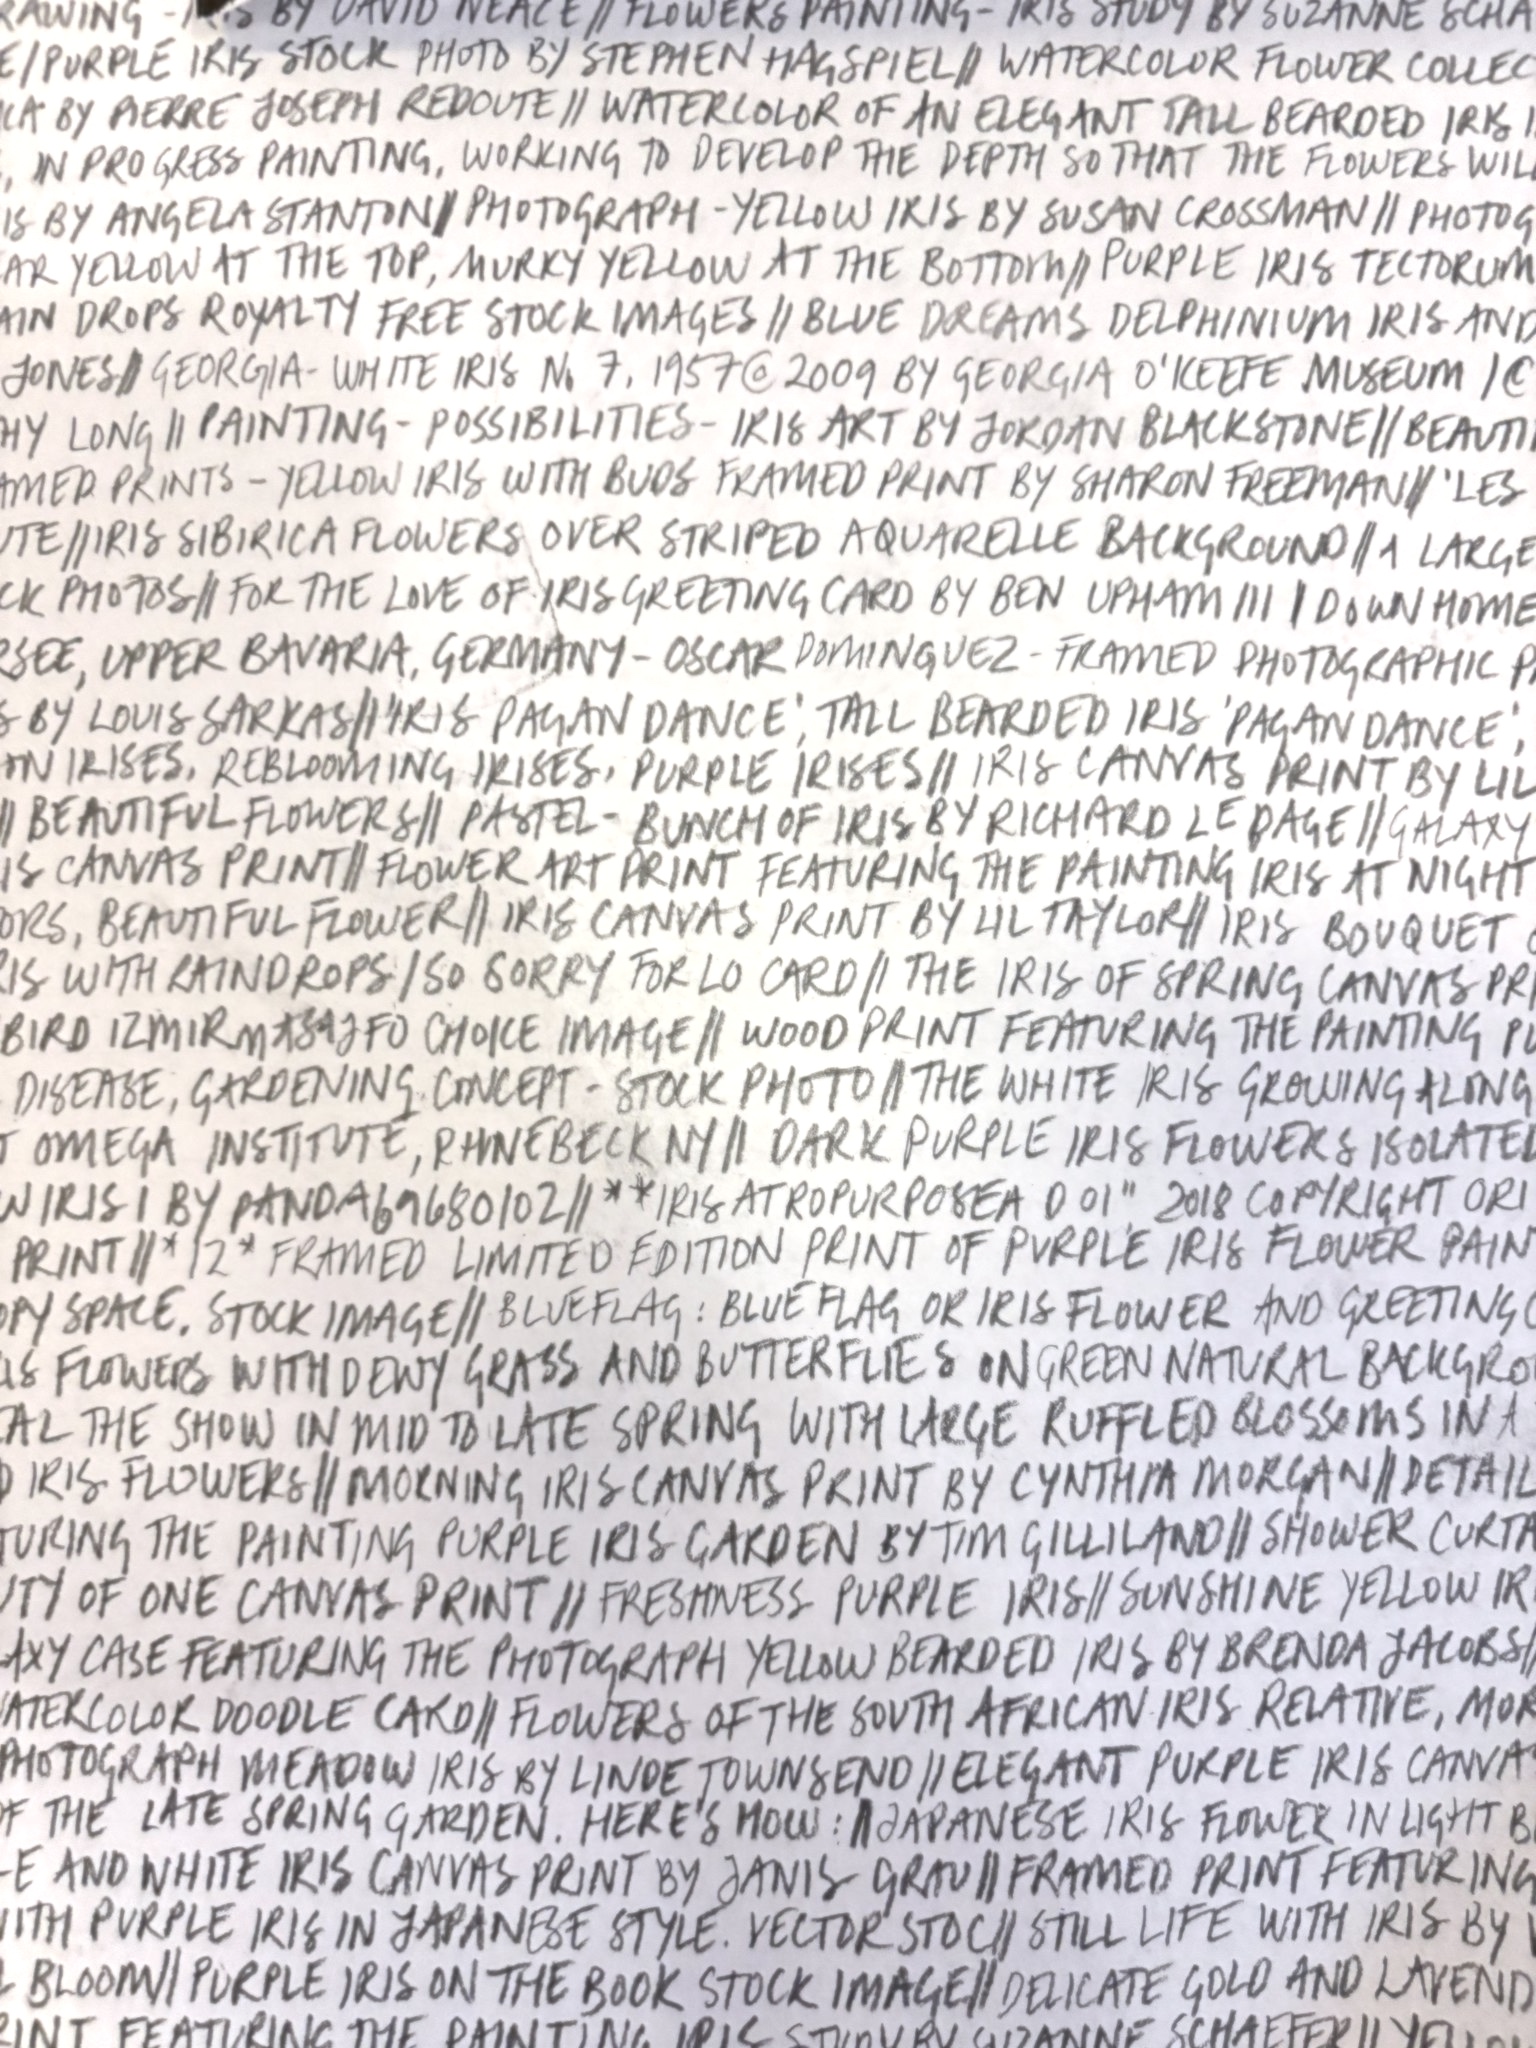 RAWING - IRIS BY DAVID NEACE // FLOWERS PAINTING - IRIS STUDY BY SUZANNE SCHA
E / PURPLE IRIS STOCK PHOTO BY STEPHEN HAGSPIEL // WATERCOLOR FLOWER COLLEC
ICA BY PIERRE JOSEPH REDOUTE // WATERCOLOR OF AN ELEGANT TALL BEARDED IRIS
, IN PROGRESS PAINTING, WORKING TO DEVELOP THE DEPTH SO THAT THE FLOWERS WIL
IS BY ANGELA STANTON // PHOTOGRAPH - YELLOW IRIS BY SUSAN CROSSMAN // PHOTOG
EAR YELLOW AT THE TOP, MURKY YELLOW AT THE BOTTOM // PURPLE IRIS TECTORUM
AIN DROPS ROYALTY FREE STOCK IMAGES // BLUE DREAMS DELPHINIUM IRIS AND
JONES // GEORGIA - WHITE IRIS No 7, 1957 © 2009 BY GEORGIA O'KEEFE MUSEUM / ©
HY LONG // PAINTING - POSSIBILITIES - IRIS ART BY JORDAN BLACKSTONE // BEAUTI
AMED PRINTS - YELLOW IRIS WITH BUDS FRAMED PRINT BY SHARON FREEMAN // 'LES
UTE // IRIS SIBIRICA FLOWERS OVER STRIPED AQUARELLE BACKGROUND // A LARGE
CK PHOTOS // FOR THE LOVE OF IRIS GREETING CARD BY BEN UPHAM III / DOWN HOME
RSEE, UPPER BAVARIA, GERMANY - OSCAR DOMINGUEZ - FRAMED PHOTOGRAPHIC P
S BY LOUIS SARKAS // 'IRIS PAGAN DANCE', TALL BEARDED IRIS 'PAGAN DANCE',
ON IRISES, REBLOOMING IRISES, PURPLE IRISES // IRIS CANVAS PRINT BY LIL
// BEAUTIFUL FLOWERS // PASTEL - BUNCH OF IRIS BY RICHARD LE PAGE // GALAXY
IS CANVAS PRINT // FLOWER ART PRINT FEATURING THE PAINTING IRIS AT NIGHT
ORS, BEAUTIFUL FLOWER // IRIS CANVAS PRINT BY LIL TAYLOR // IRIS BOUQUET
RIS WITH RAINDROPS / SO SORRY FOR LO CARD // THE IRIS OF SPRING CANVAS PR
BIRD IZMIRMASAJFO CHOICE IMAGE // WOOD PRINT FEATURING THE PAINTING PU
DISEASE, GARDENING CONCEPT - STOCK PHOTO // THE WHITE IRIS GROWING ALONG
T OMEGA INSTITUTE, RHINEBECK NY // DARK PURPLE IRIS FLOWERS ISOLATED
W IRIS I BY PANDA69680102 // **IRIS ATROPURPOSEA D 01" 2018 COPYRIGHT ORI
PRINT // *12* FRAMED LIMITED EDITION PRINT OF PURPLE IRIS FLOWER PAIN
OPY SPACE. STOCK IMAGE // BLUEFLAG: BLUE FLAG OR IRIS FLOWER AND GREETING C
IS FLOWERS WITH DEWY GRASS AND BUTTERFLIES ON GREEN NATURAL BACKGRO
EAL THE SHOW IN MID TO LATE SPRING WITH LARGE RUFFLED BLOSSOMS IN A
D IRIS FLOWERS // MORNING IRIS CANVAS PRINT BY CYNTHIA MORGAN // DETAIL
TURING THE PAINTING PURPLE IRIS GARDEN BY TIM GILLILAND // SHOWER CURTA
UTY OF ONE CANVAS PRINT // FRESHNESS PURPLE IRIS // SUNSHINE YELLOW IR
AXY CASE FEATURING THE PHOTOGRAPH YELLOW BEARDED IRIS BY BRENDA JACOBS //
WATERCOLOR DOODLE CARD // FLOWERS OF THE SOUTH AFRICAN IRIS RELATIVE, MOR
PHOTOGRAPH MEADOW IRIS BY LINDE TOWNSEND // ELEGANT PURPLE IRIS CANVA
OF THE LATE SPRING GARDEN. HERE'S HOW: // JAPANESE IRIS FLOWER IN LIGHT B
E AND WHITE IRIS CANVAS PRINT BY JANIS GRAU // FRAMED PRINT FEATURING
WITH PURPLE IRIS IN JAPANESE STYLE. VECTOR STOC // STILL LIFE WITH IRIS BY
L BLOOM // PURPLE IRIS ON THE BOOK STOCK IMAGE // DELICATE GOLD AND LAVEND
RINT FEATURING THE PAINTING IRIS STUDY BY SUZANNE SCHAEFER // YELLOW